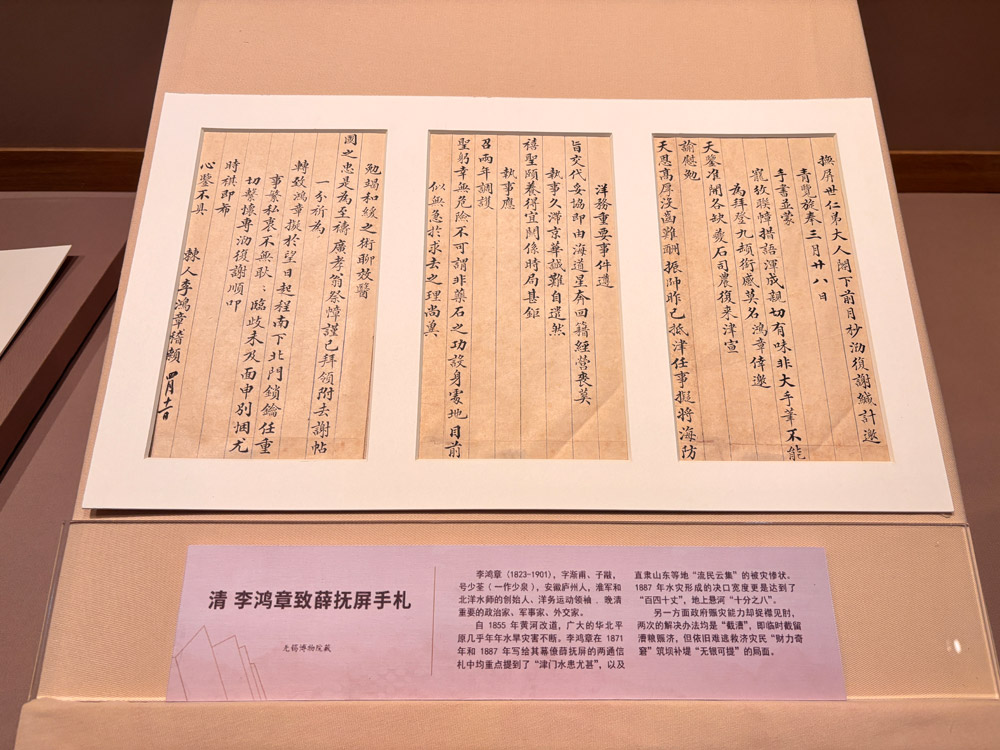 撫屏世仁弟大人閣下前月杪泐復謝緘計邀
青覽旋奉三月廿八日
手書並蒙
寵敘聯幛措語渾成親切有味非大手筆不能
為拜登九頓銜感莫名鴻章倖邀
天鑒准開各缺夔石司農復來津宣
諭慰勉
天恩高厚沒齒難酬振帥昨已抵津任事擬將海防
洋務重要事件遵
旨交代妥協即由海道星奔回籍經營喪葬
執事久滯京華誠難自遣然
禧聖頤養得宜關係時局甚鉅
執事應
召兩年調護
聖躬幸無危險不可謂非藥石之功設身處地目前
似無急於求去之理尚冀
勉竭和緩之術聊效醫
國之忠是為至禱廣孝翁祭幛謹已拜領附去謝帖
一分祈為
轉致鴻章擬於望日起程南下北門鎖鑰任重
事繁私衷不無耿〻臨歧未及面申別悃尤
切繫懷專泐復謝順叩
時祺即希
心鑒不具
棘人李鴻章稽顙 四月十一日
清 李鸿章致薛抚屏手札
无锡博物院藏
李鸿章（1823-1901），字渐甫、子黻，
号少荃（一作少泉），安徽庐州人，淮军和
北洋水师的创始人、洋务运动领袖、晚清
重要的政治家、军事家、外交家。
自 1855 年黄河改道，广大的华北平
原几乎年年水旱灾害不断。李鸿章在 1871
年和 1887 年写给其幕僚薛抚屏的两通信
札中均重点提到了“津门水患尤甚”，以及
直隶山东等地“流民云集”的被灾惨状。
1887 年水灾形成的决口宽度更是达到了
“百四十丈”，地上悬河“十分之八”。
另一方面政府赈灾能力却捉襟见肘，
两次的解决办法均是“截漕”，即临时截留
漕粮赈济，但依旧难逃救济灾民“财力奇
窘”筑坝补堤“无银可提”的局面。